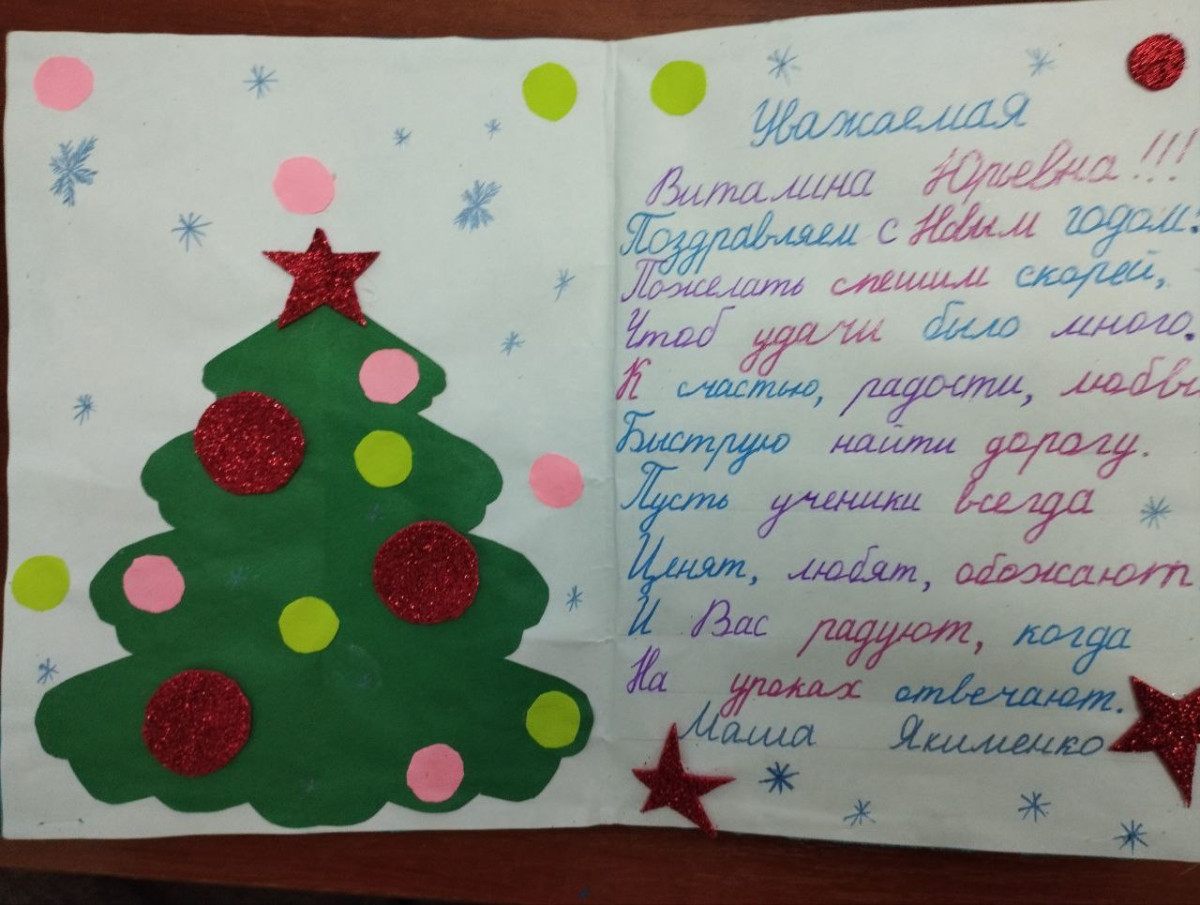 Уважаемая
Виталина Юрьевна!!!
Поздравляем с Новым годом.
Пожелать спешим скорей,
Чтоб удачи было много.
К счастью, радости, любви
Быструю найти дорогу.
Пусть ученики всегда
Ценят, любят, обожают
И Вас радуют, когда
На уроках отвечают.
Маша Якименко